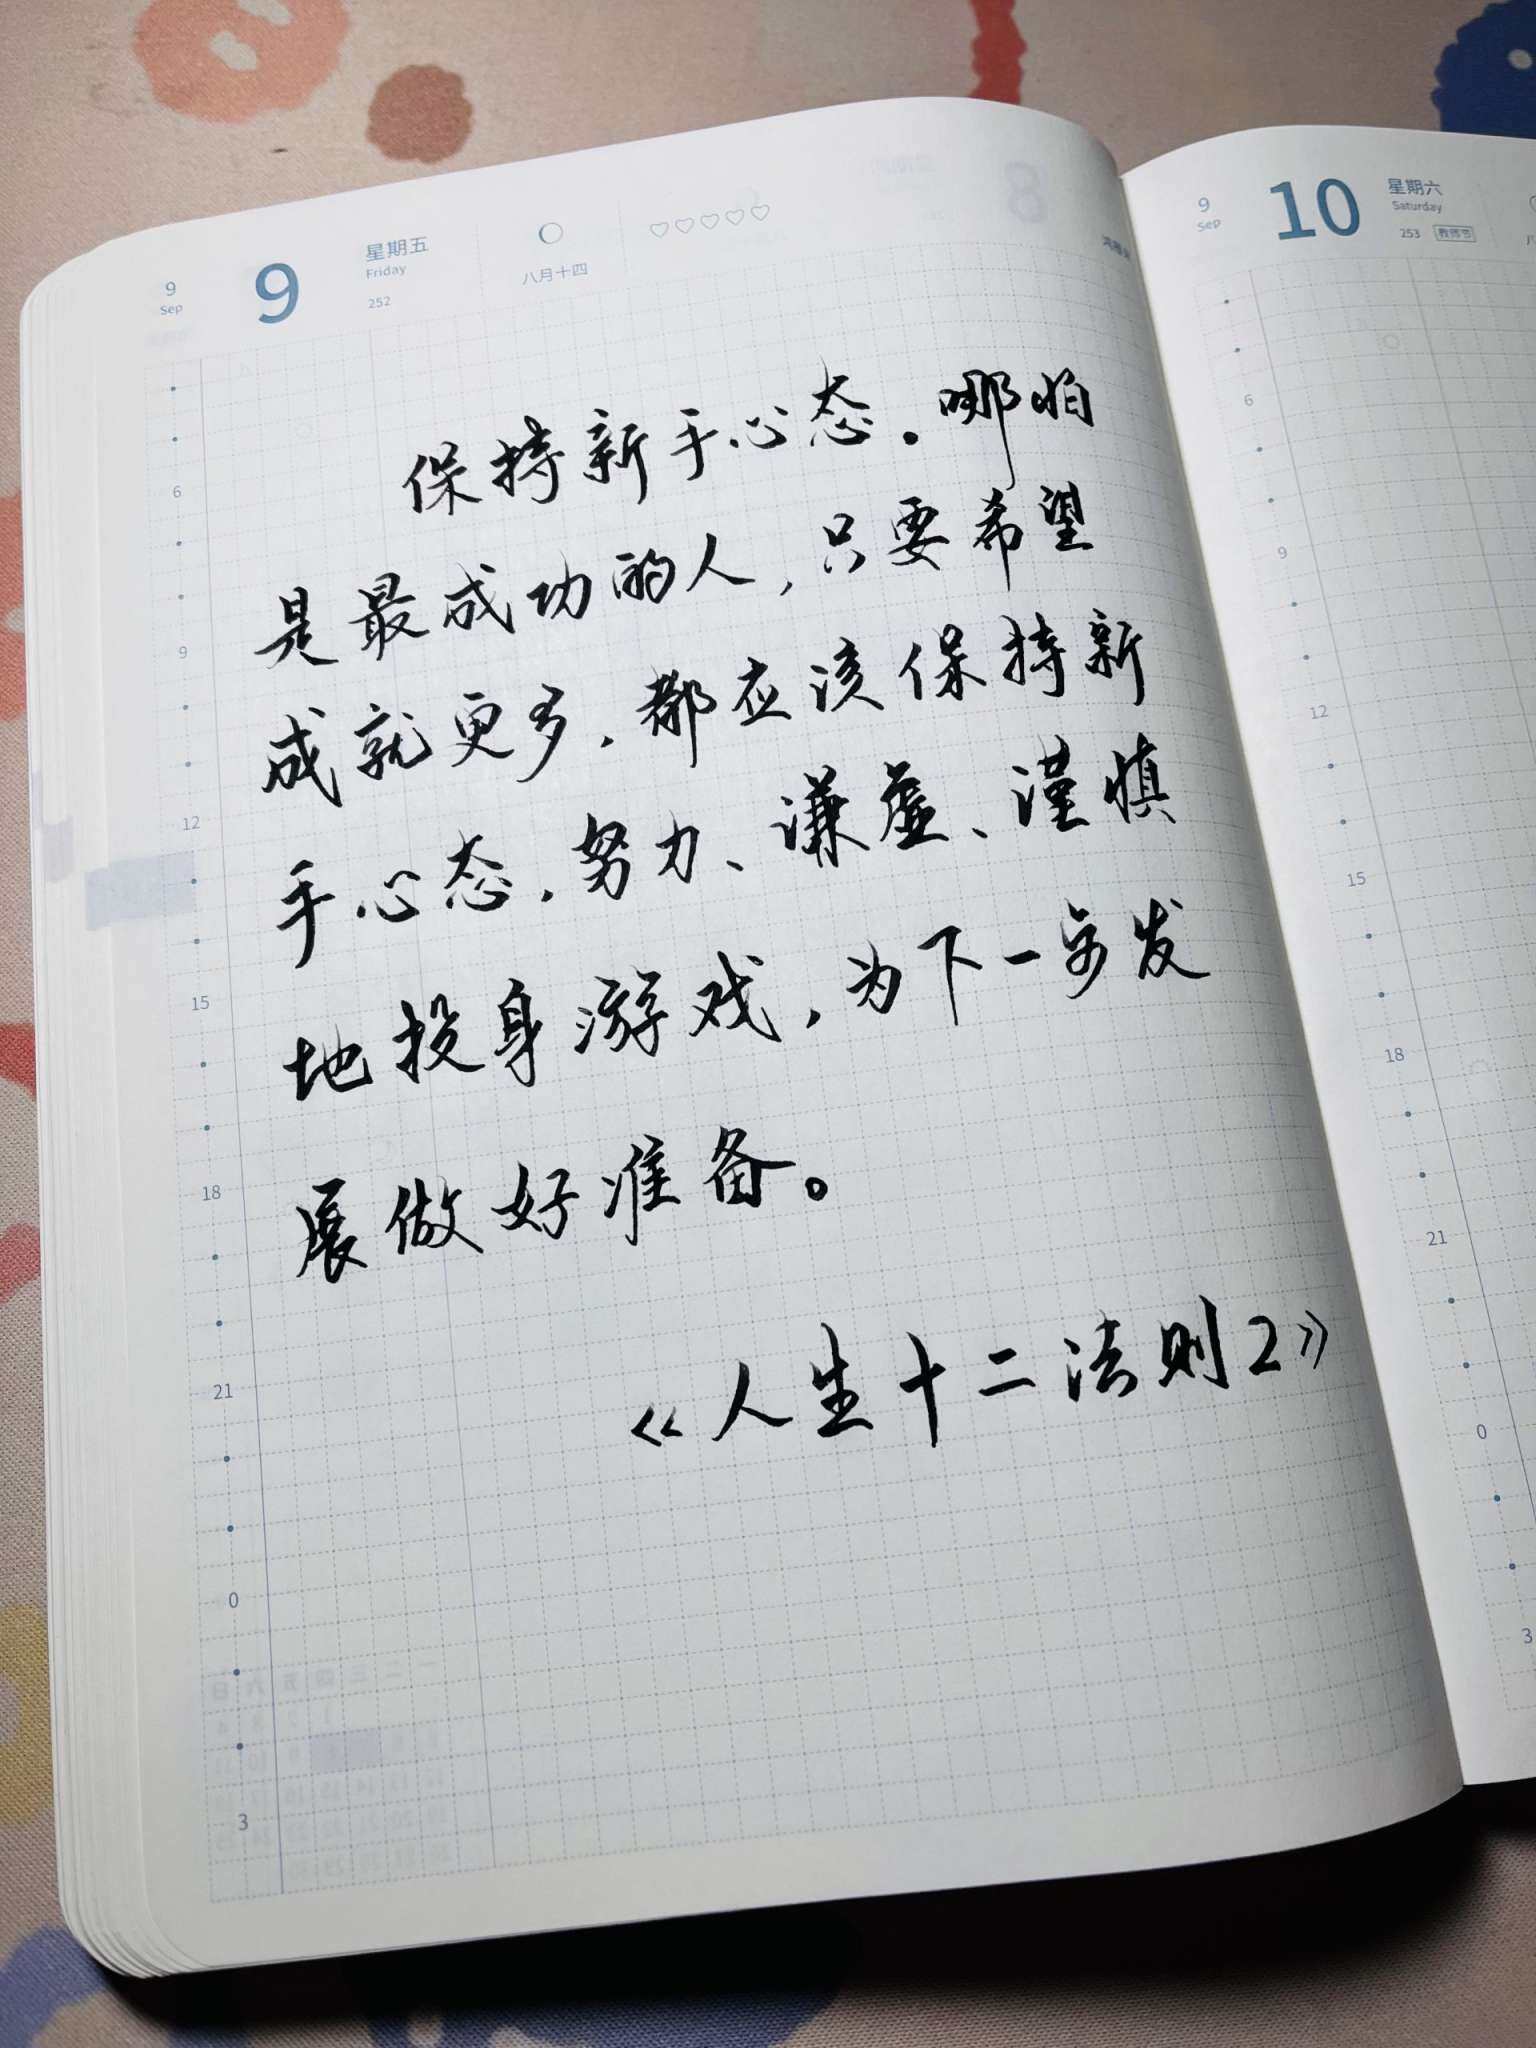 9
Sep
9
星期五
Friday
252
八月十四
保持新手心态。哪怕
是最成功的人,只要希望
成就更多,都应该保持新
手心态,努力、谦虚、谨慎
地投身游戏,为下一步发
展做好准备。
《人生十二法则2》
6
9
12
15
18
21
0
3
9
Sep
10
星期六
Saturday
253
教师节
6
9
12
15
18
21
0
3